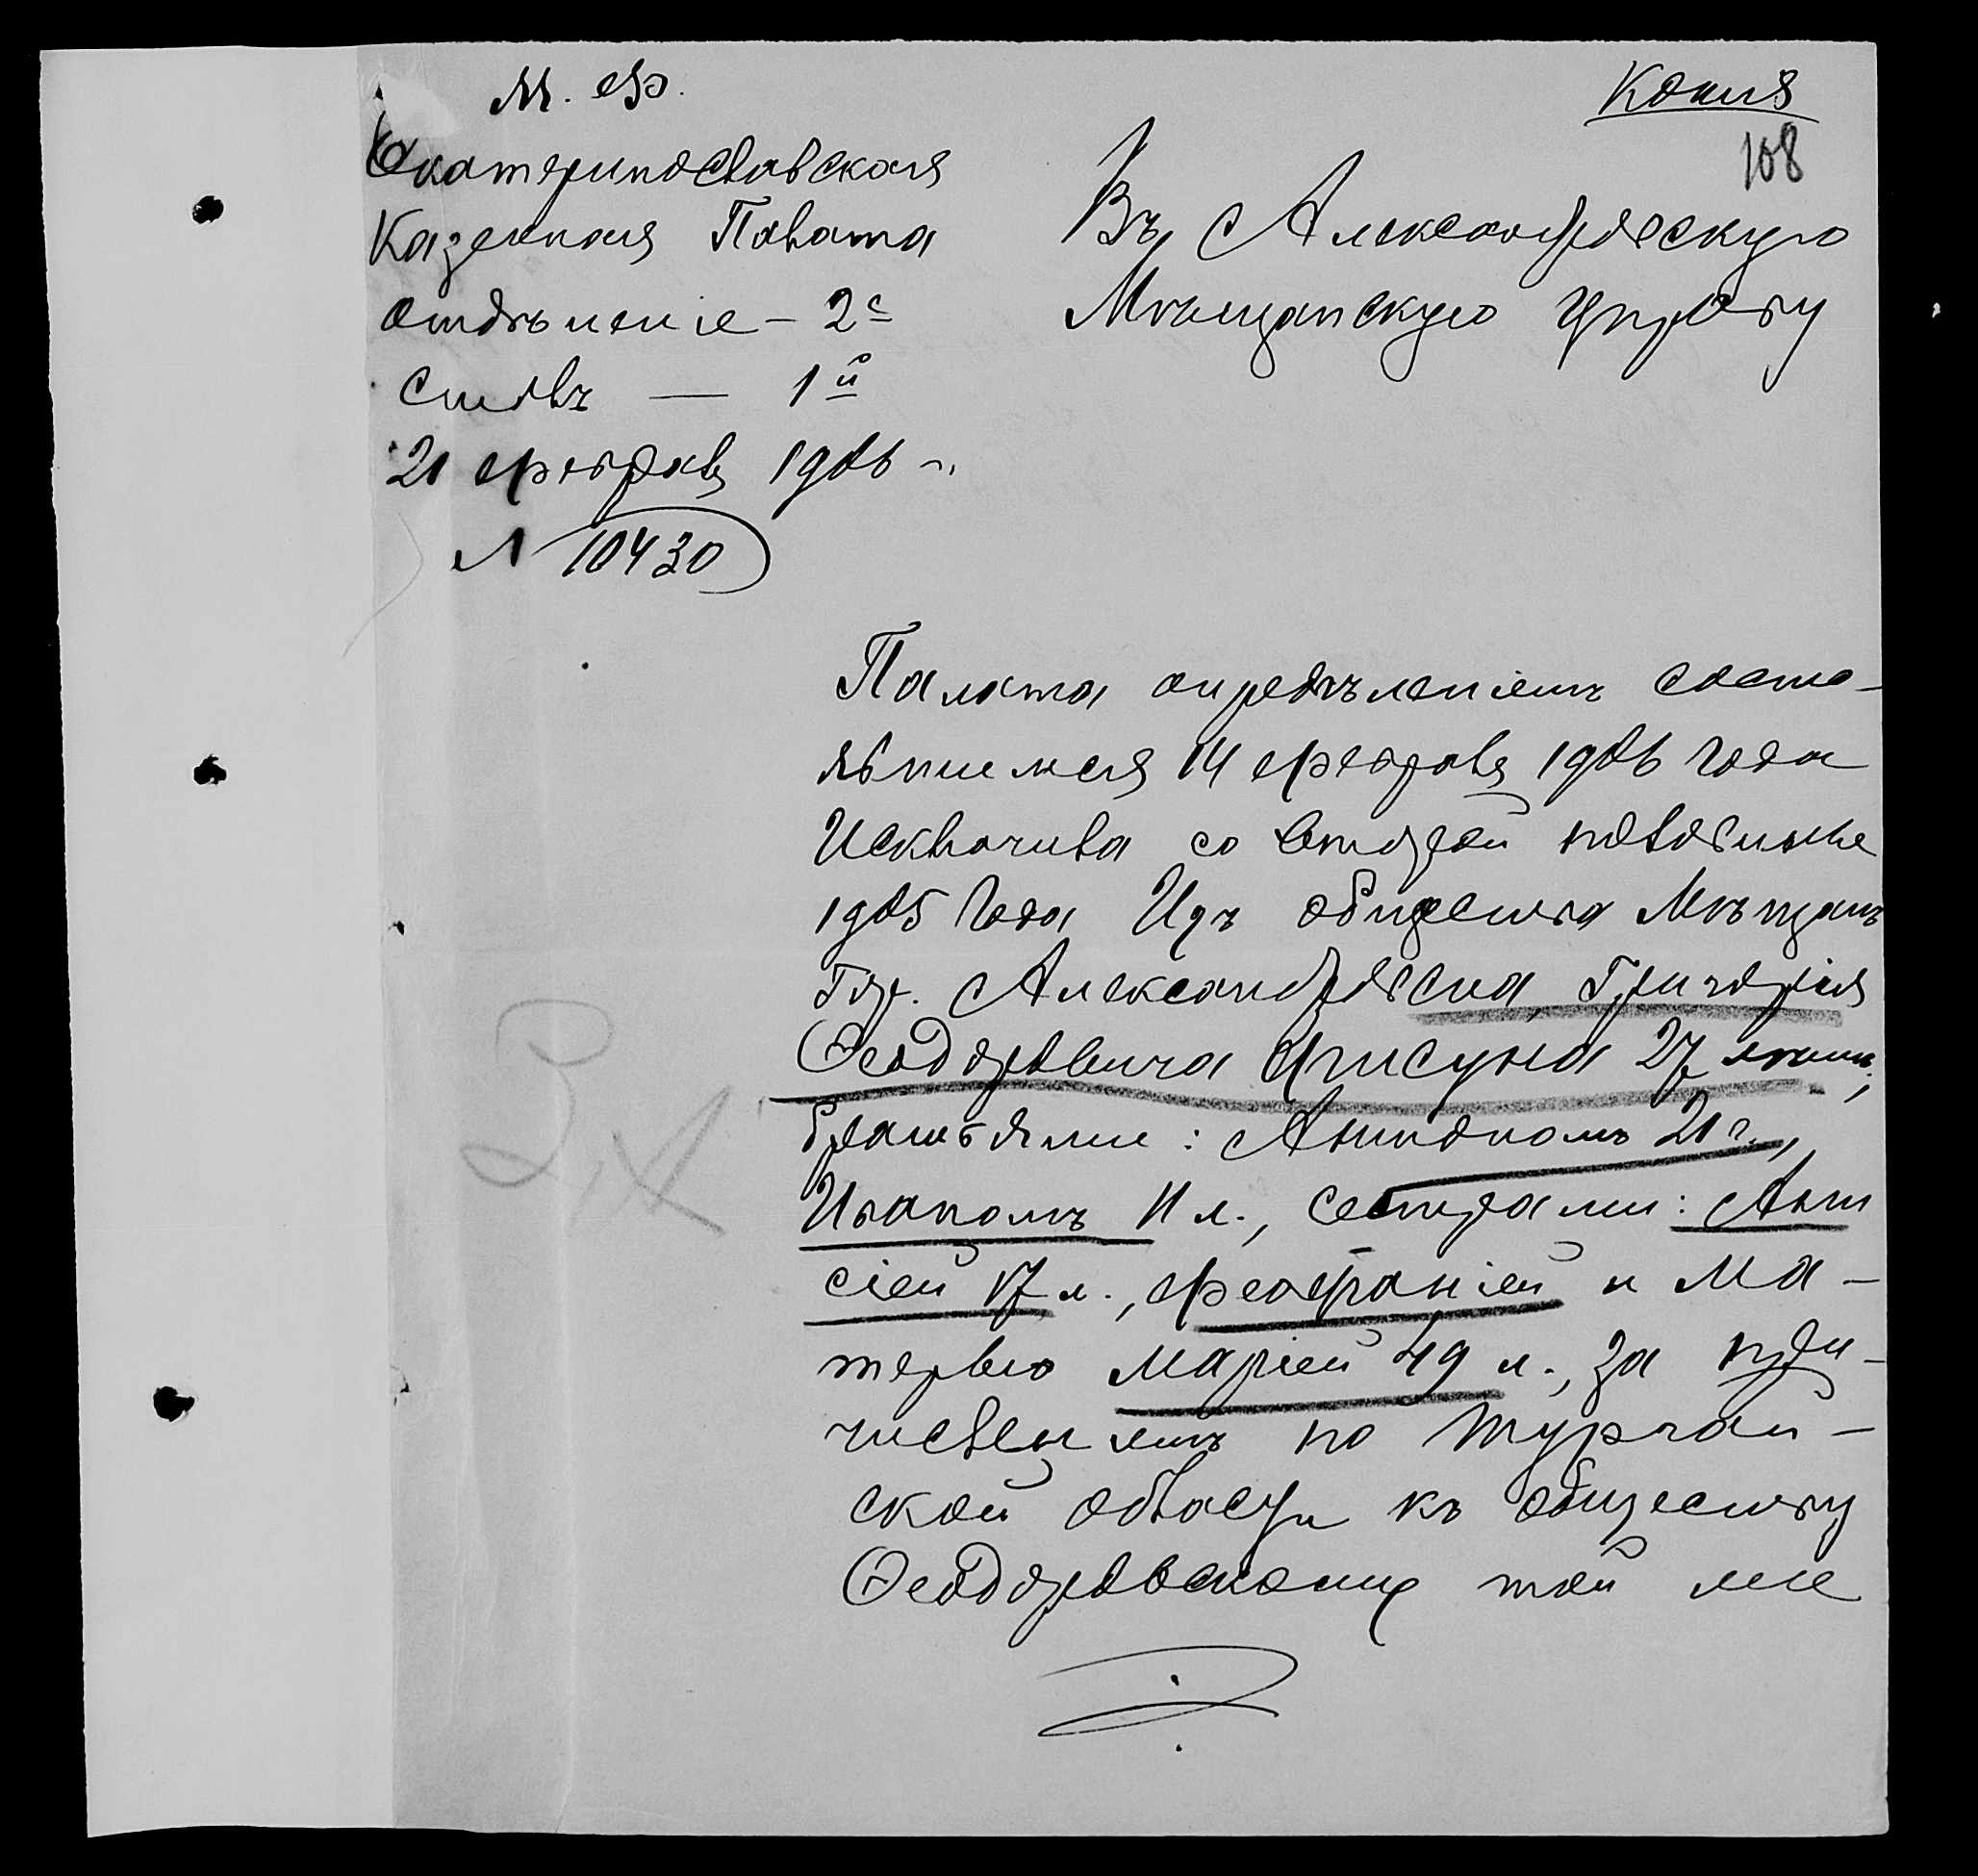 М. Ф.
Копія
108
Екатеринославская
Казенная Палата
Отдѣленіе – 2е
Столъ — 1й
21 февраля 1906 г.
№ 10430
Въ Александровскую
Мѣщанскую Управу
Палата опредѣленіемъ состо-
явшимся 14 февраля 1906 года
Исключила со второй половины
1905 года Изъ общества Мѣщанъ
Гор. Александровска, Григорія
Ѳеодоровича 27 лѣтъ,
братьями: 21 г.,
Иваномъ 11 л., сестрами:
сіей 17 л., и Ма-
терью Маріей 49 л., за при-
численіемъ по Тургай-
ской области къ обществу
той же